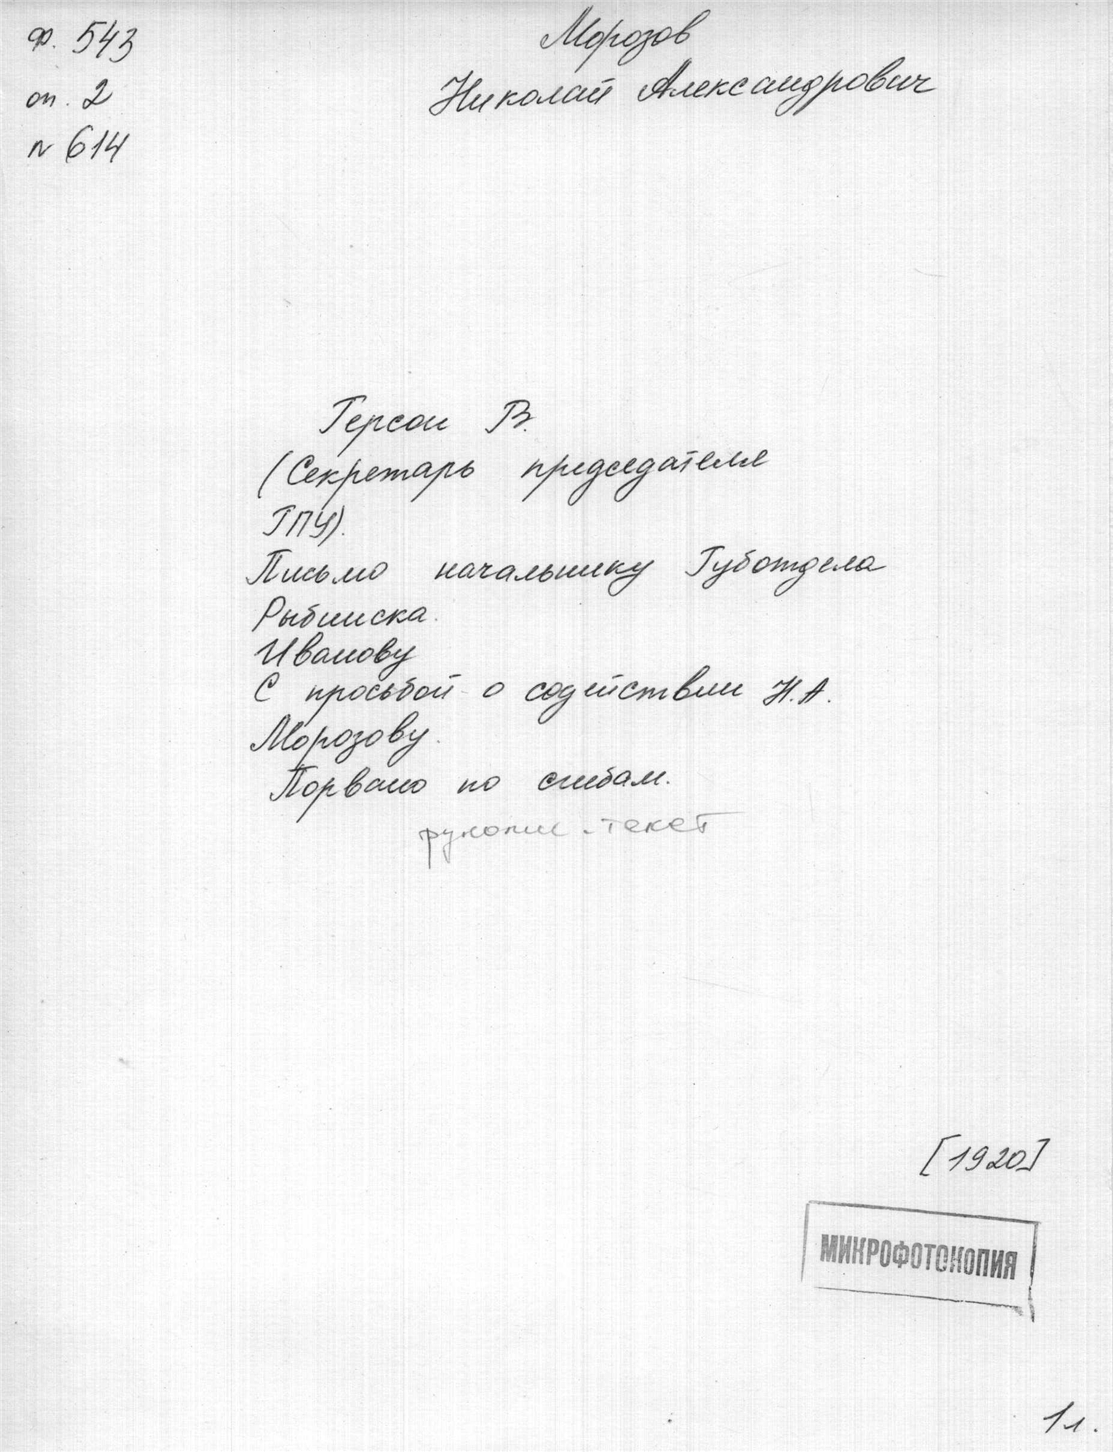 ф. 543
оп. 2
№ 614
Морозов
Николай Александрович
Герсон В.
(Секретарь председателя
ГПУ).
Письмо начальнику Губотдела
Рыбинска.
Иванову
С просьбой о содействии Н.А.
Морозову.
Порвано по сгибам.
рукопис. текст
[1920]
МИКРОФОТОКОПИЯ
1л.